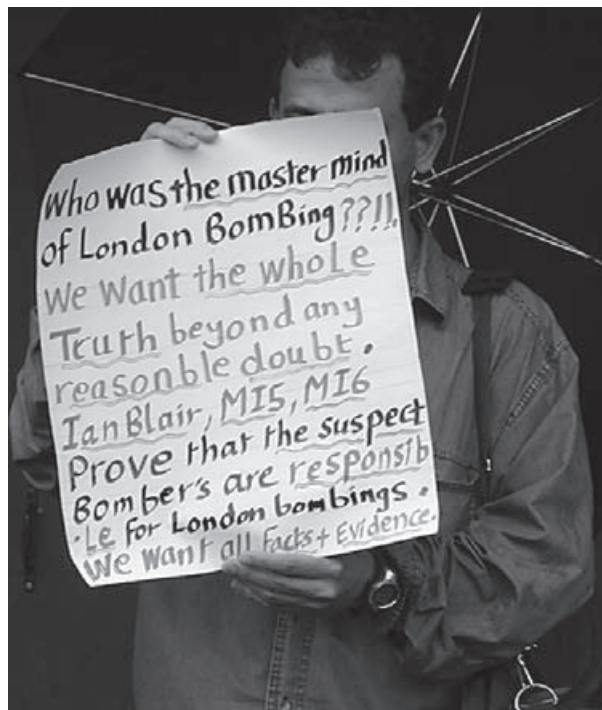 Who was the master mind
of London BomBing??!!.
We Want the whole
Truth beyond any
reasonble doubt.
Ian Blair, MI5, MI6
Prove that the suspect
Bomber's are responsib
.Le for London bombings.
We want all Facts + Evidence.